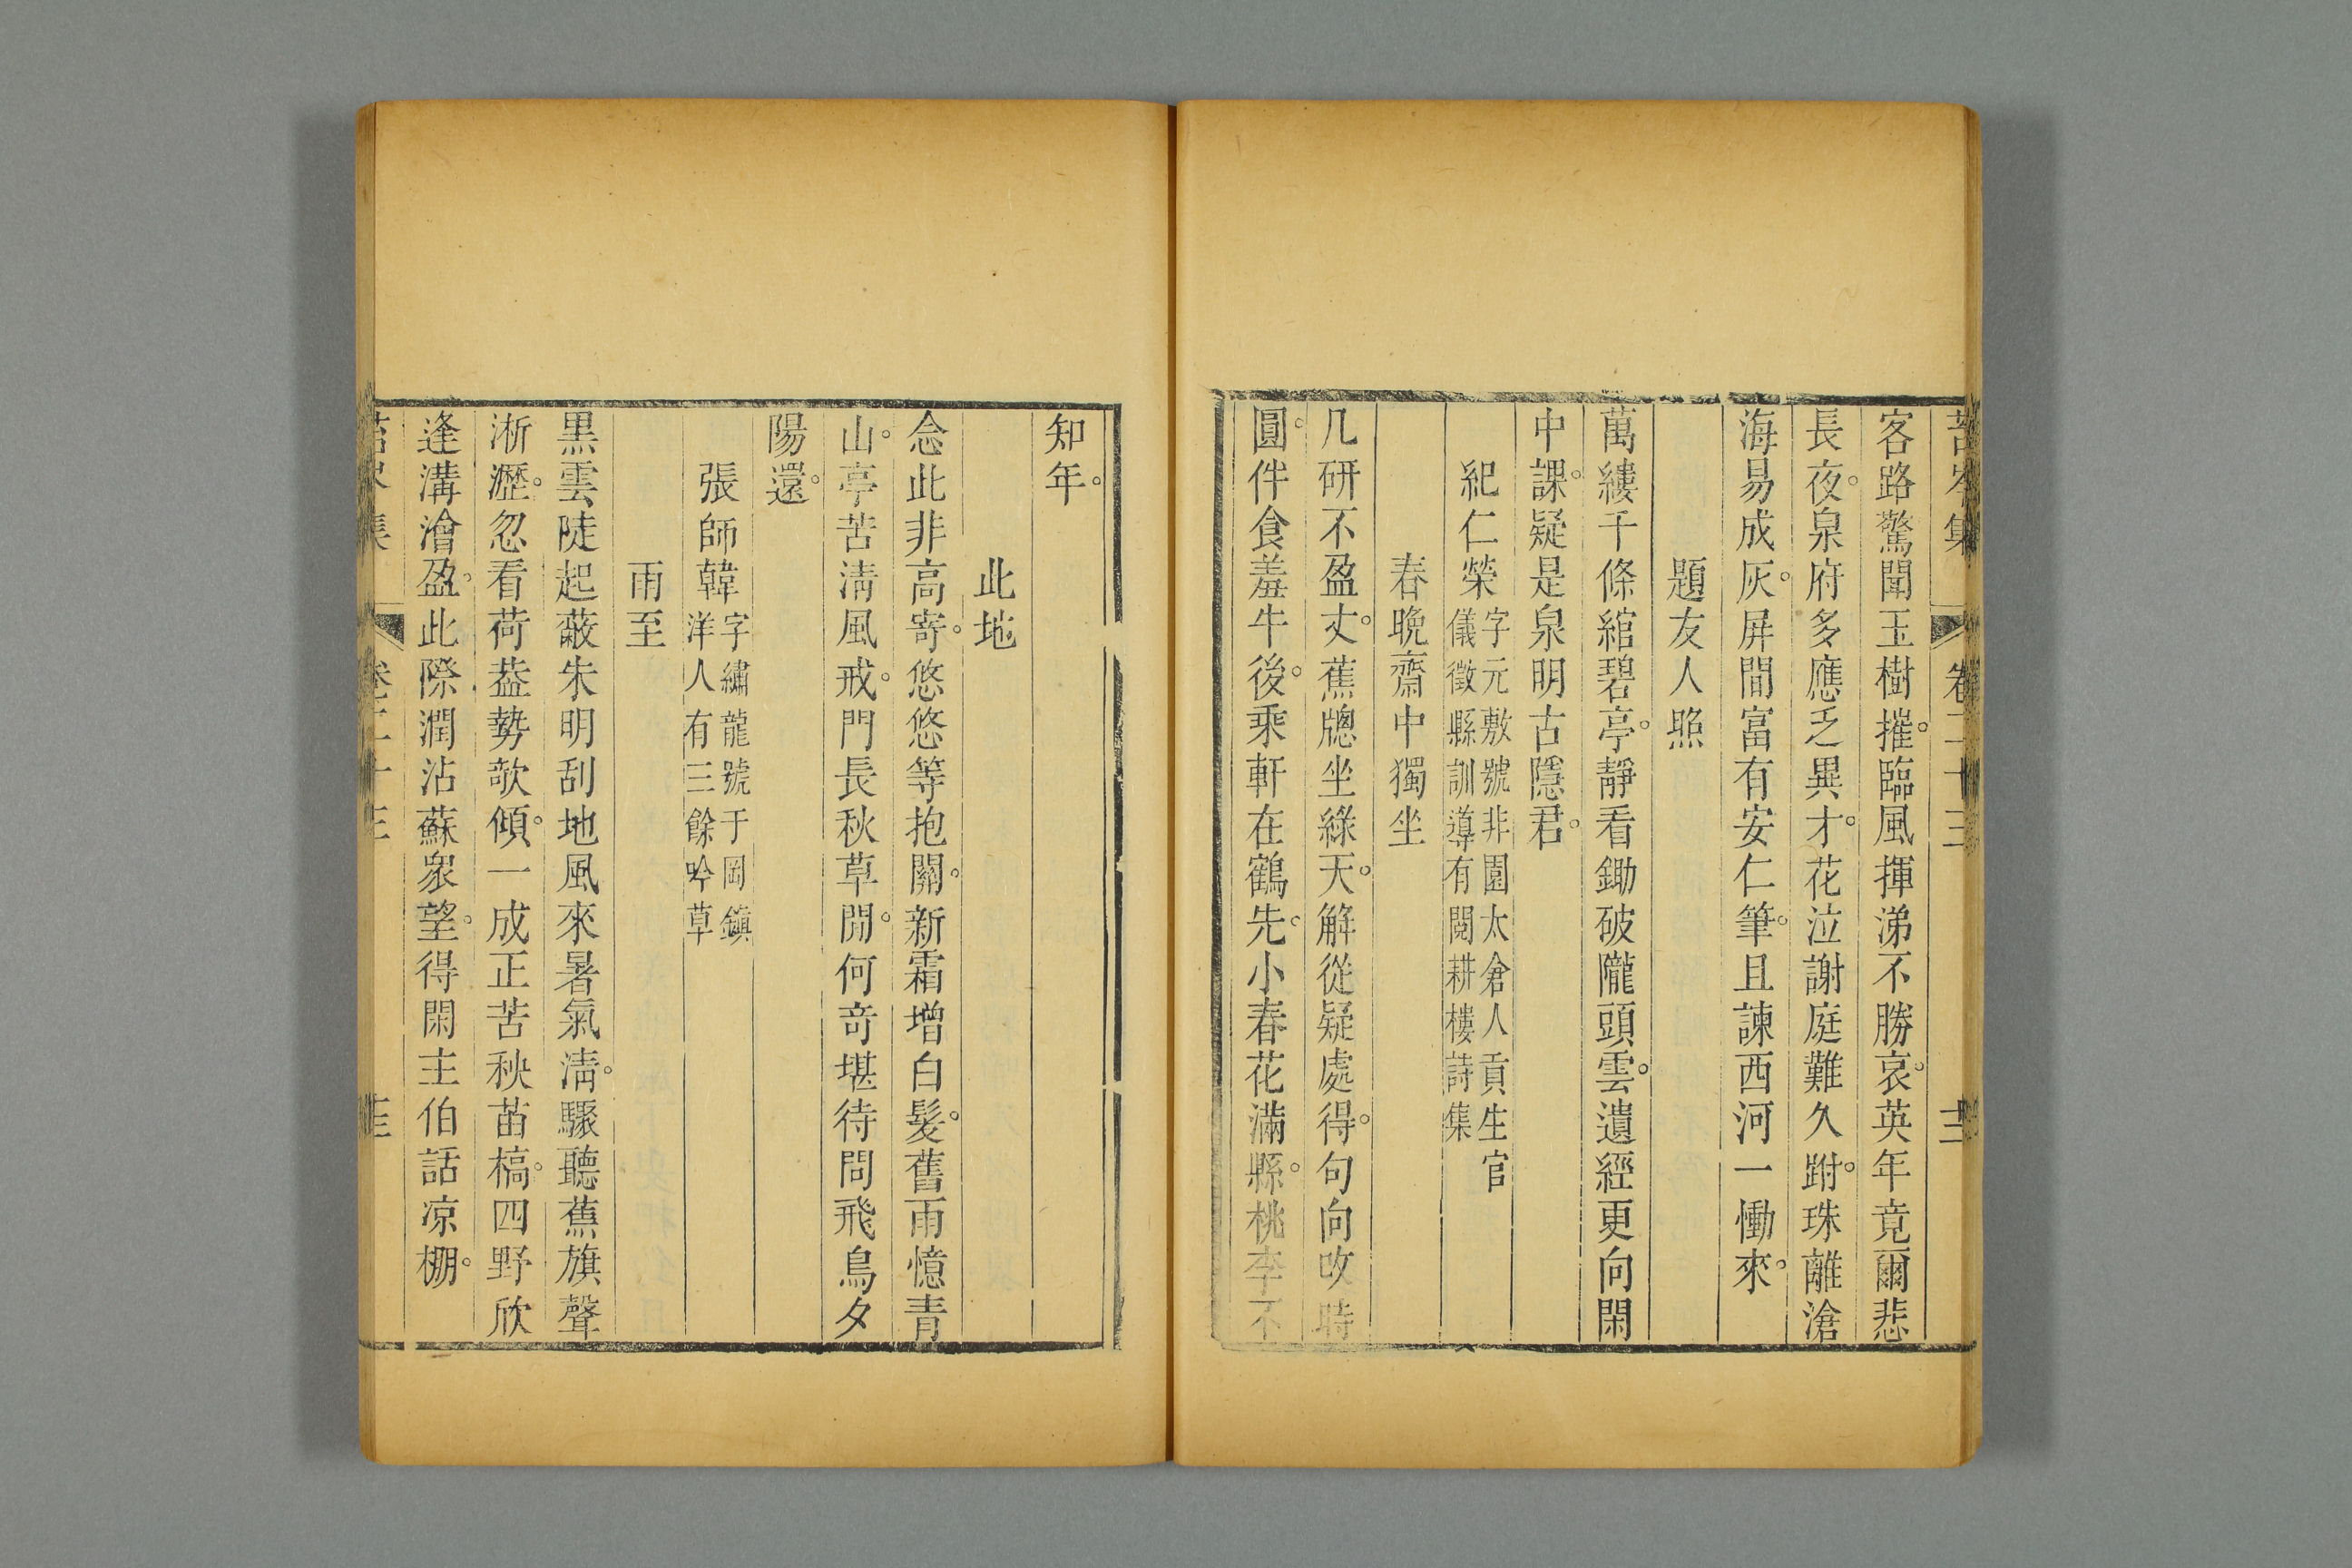 苔岑集 卷二十三 十二
客路驚聞玉樹摧。臨風揮涕不勝哀。英年竟爾悲
長夜。泉府多應乏異才。花泣謝庭難久跗。珠離滄
海易成灰。屏間富有安仁筆。且諫西河一慟來。
題友人照
萬縷千條綰碧亭。靜看鋤破隴頭雲。遺經更向閑
中課。疑是泉明古隱君。
紀仁榮 字元敷號非園太倉人貢生官
儀徵縣訓導有閱耕樓詩集
春晚齋中獨坐
几研不盈丈。蕉牕坐綠天。解從疑處得。句向改時
圓。伴食羞牛後。乘軒在鶴先。小春花滿縣。桃李不
知年。
此地
念此非高寄。悠悠等抱關。新霜增白髮。舊雨憶青
山。亭苦淸風戒。門長秋草閒。何奇堪待問。飛鳥夕
陽還。
張師韓 字繡龍號于岡鎮
洋人有三餘吟草
雨至
黑雲陡起蔽朱明刮地風來暑氣淸。驟聽蕉旗聲
淅瀝。忽看荷葢勢欹傾。一成正苦秧苗槁。四野欣
逢溝澮盈。此際潤沾蘇衆望。得閑主伯話凉棚。
苔岑集 卷二十三